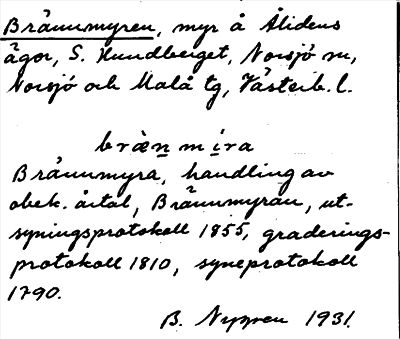 Brännmyren, myr å Ålidens
ägor, S. Hundberget, Norsjö sn,
Norsjö och Malå tg, Västerb. l.
brä̀n m íra
Brännmyra, handling av
obek. årtal, Brännmyran, ut-
syningsprotokoll 1855, graderings-
protokoll 1810, syneprotokoll
1790.
B. Nygren 1931.